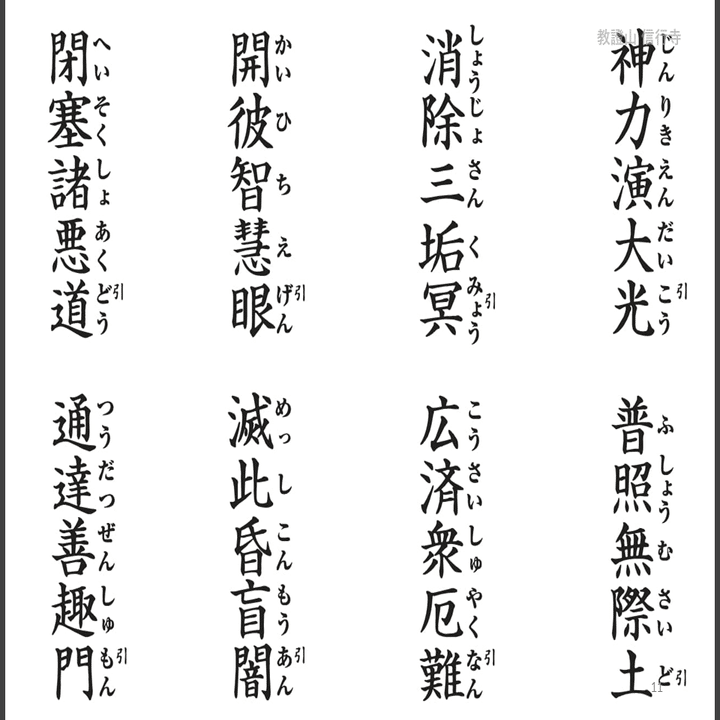 教證山信行寺
神力演大光
じんりきえんだいこう引
普照無際土
ふしょうむさいど引
消除三垢冥
しょうじょさんくみょう引
広済衆厄難
こうさいしゅやくなん引
開彼智慧眼
かいひちえげん引
滅此昏盲闇
めっしこんもうあん引
閉塞諸悪道
へいそくしょあくどう引
通達善趣門
つうだつぜんしゅもん引
11